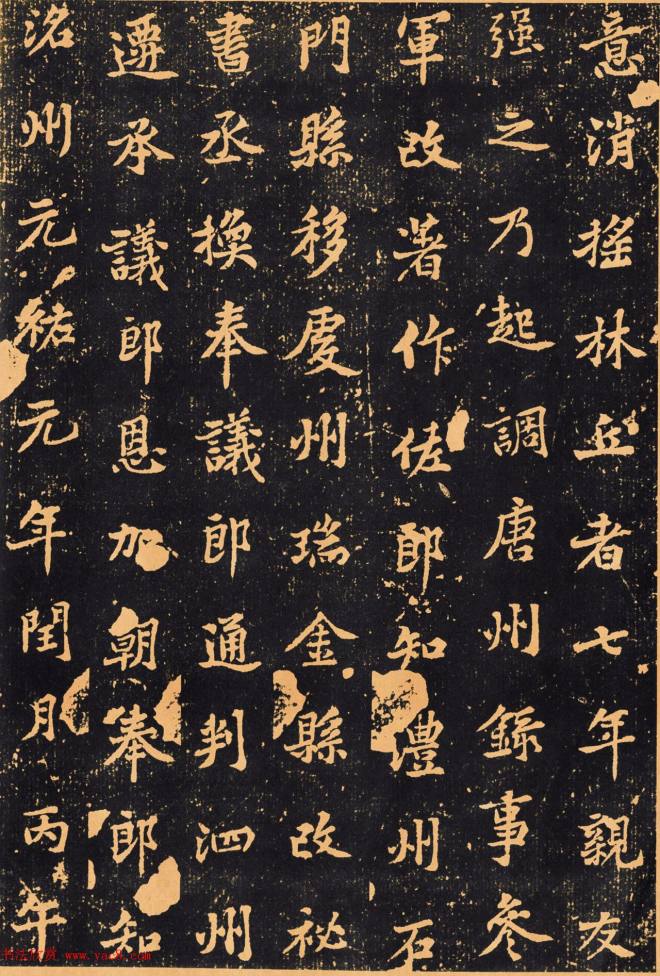 意消揺林丘者七年親友
强之乃起調唐州錄事叅
軍改著作佐郎知澧州石
門縣移虔州瑞金縣改祕
書丞換奉議郎通判泗州
遷承議郎恩加朝奉郎知
洺州元祐元年閏月丙午